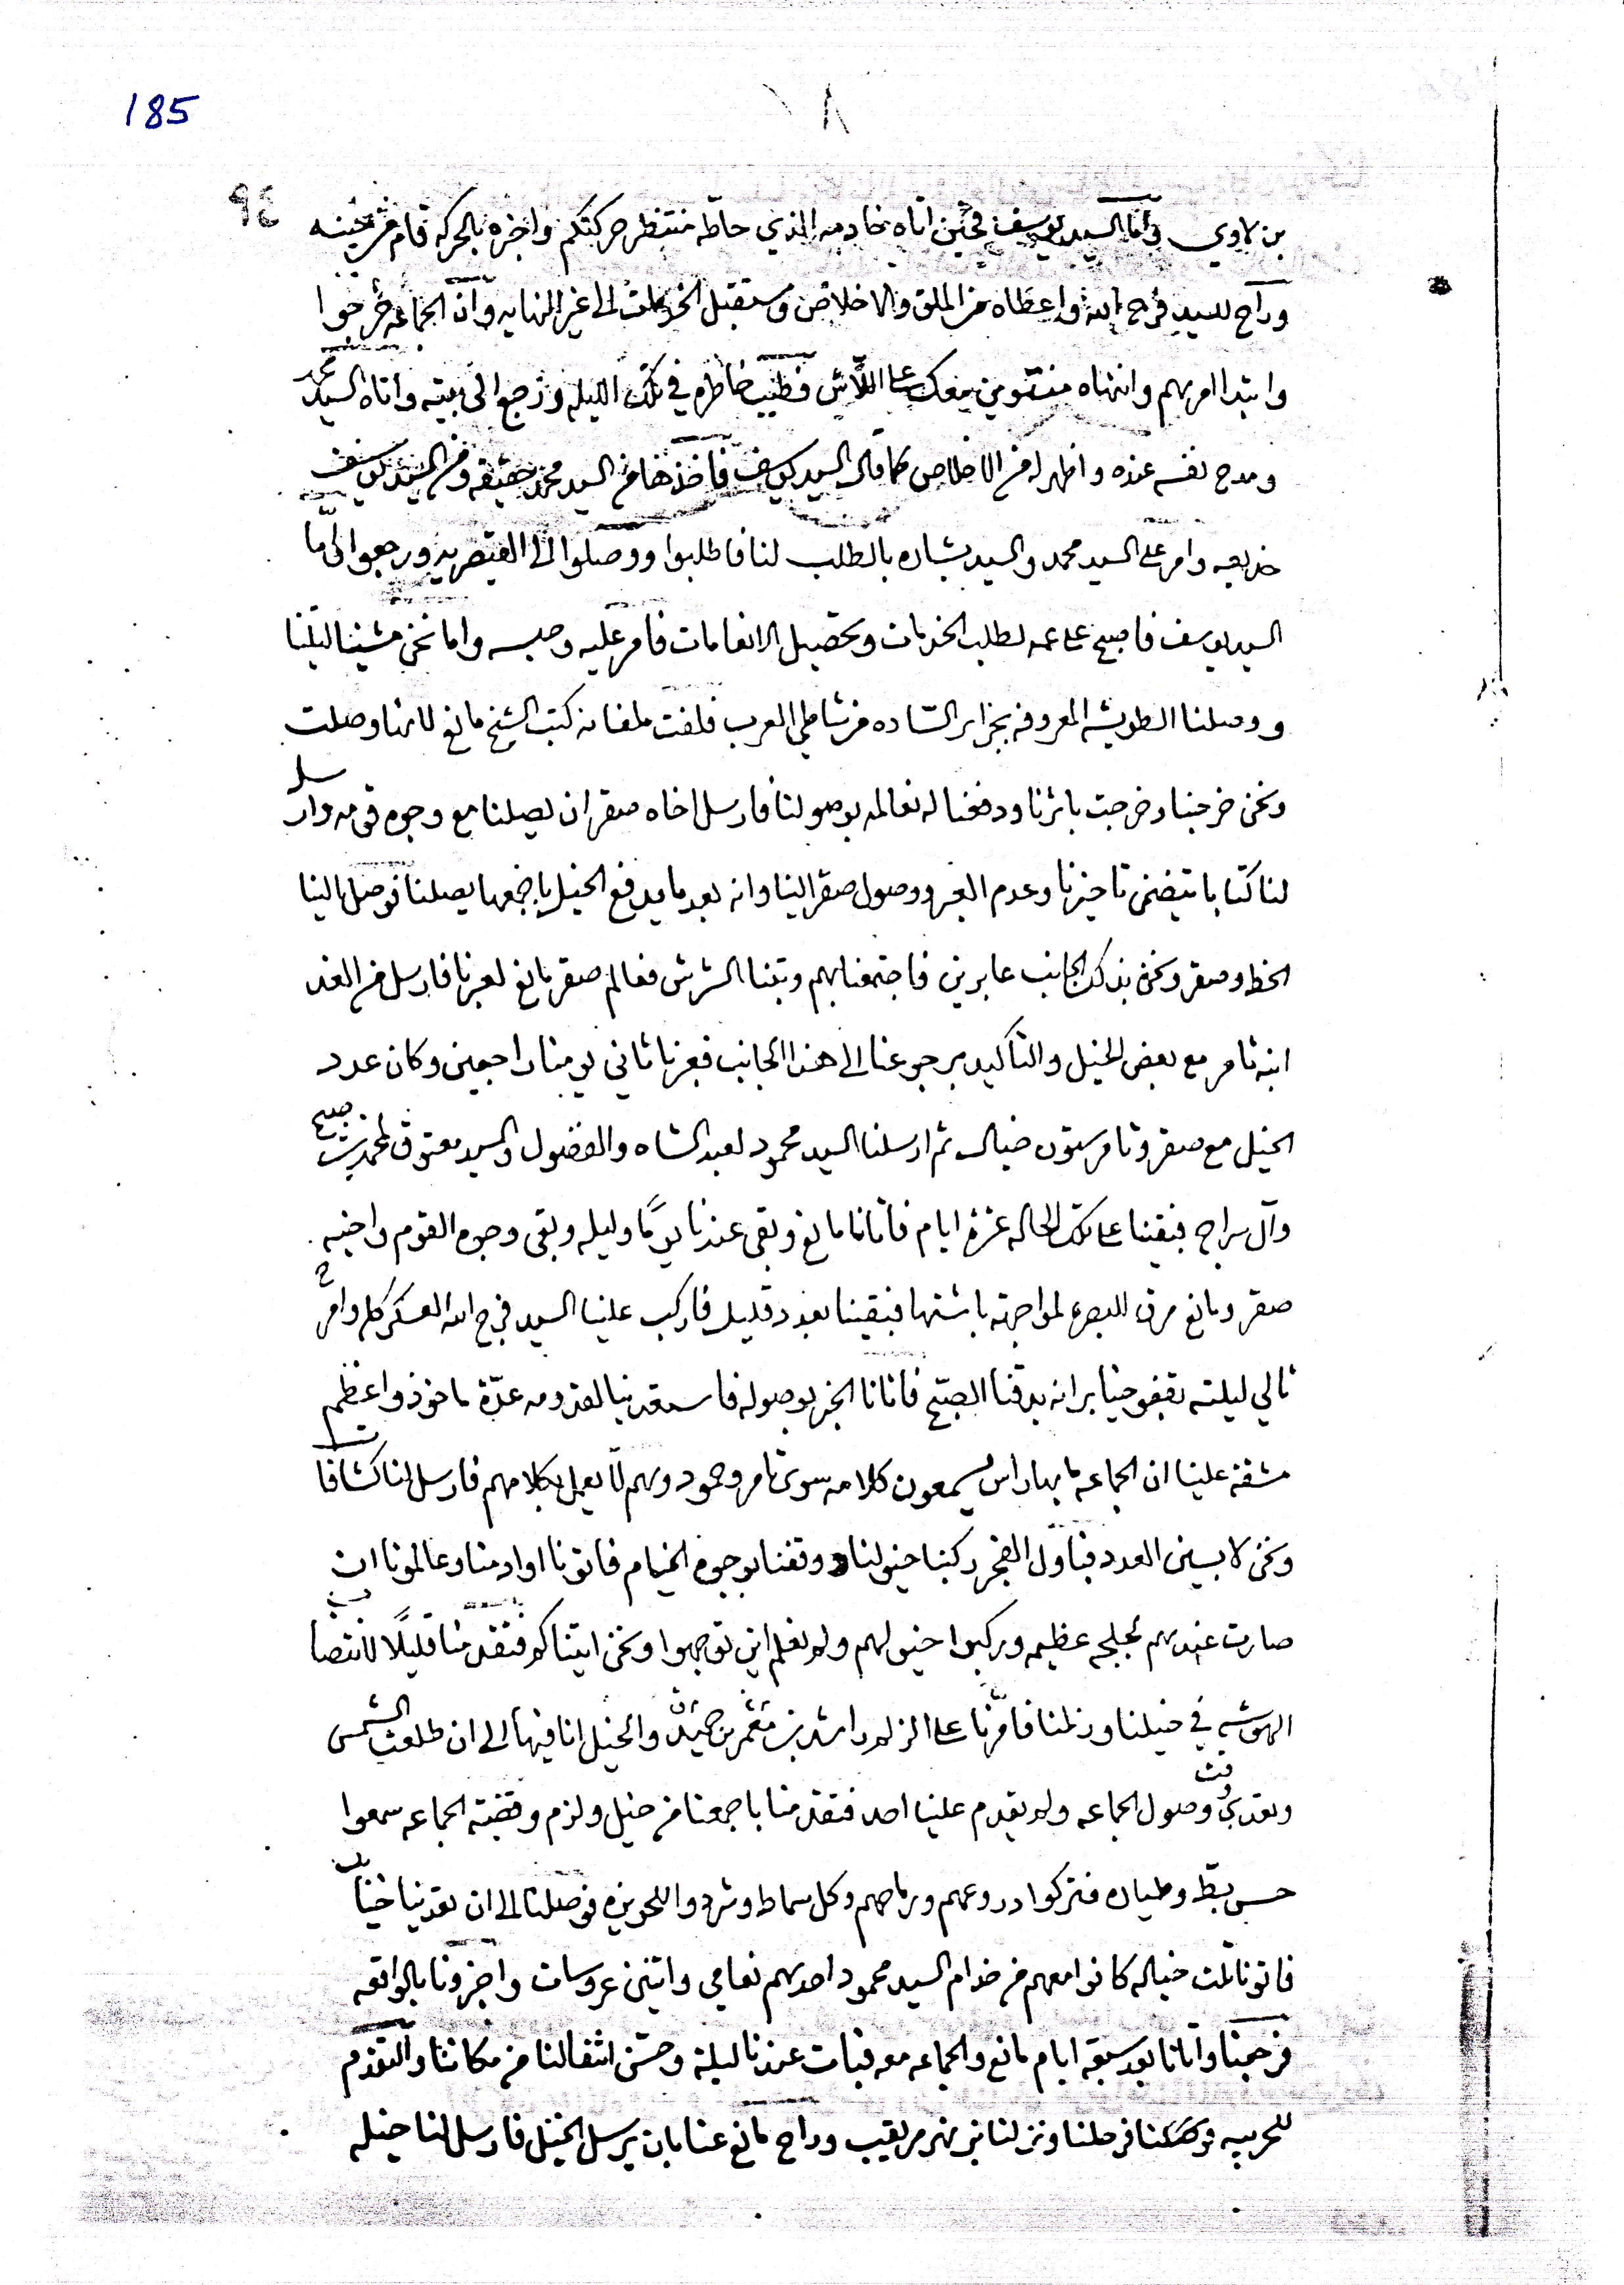 185
٩٤
بن لاوي واما السيد يوسف فحين اتاه خادمه الذي حاطه منتظر حركتكم واخبره بالحركه قام من حينه
وراح للسيد فرج الله واعطاه من الملق والاخلاص ومستقبل الخدمات الى غير النهايه وان الجماعه خرجوا
وابتدا امرهم وانتهاه معك على اللاش فطيب خاطره في تلك الليله ورجع الى بيته واتاه السيد محمد
ومدح نفسه عنده واظهر له من الاخلاص كما قال السيد يوسف فاخذها من السيد محمد حقيقه ومن السيد يوسف
خديعه وامر على السيد محمد والسيد بشاره بالطلب لنا فاطلبوا ووصلوا الى القيصريه ورجعوا اما
السيد يوسف فاصبح على عمه لطلب الخدمات وتحصيل الانعامات فامر عليه وحبسه واما نحن مشينا ليلنا
ووصلنا الطويشه المعروفه بجزاير الساده من شاطي العرب فلفت ملفانه كتب الشيخ مانع لانها وصلت
ونحن خرجنا وخرجت باثرنا ودفعنا له نعالمه بوصولنا فارسل اخاه صقر ان يصلنا مع وجوه قومه وارسل
لنا كتابا يتضمن تاخيرنا وعدم العبر ووصول صقر الينا وانه بعد ما يدفع الخيل باجمعها يصلنا فوصل الينا
الخط وصقر ونحن بذلك الجانب عابرين فاجتمعنا بهم وبتنا الشرش فعالم صقر مانع لعبرنا فارسل من الغد
ابنه ثامر مع بعض الخيل والتاكيد برجوعنا الى هذا الجانب فعبرنا ثاني يومنا راجعين وكان عدد
الخيل مع صقر وثامر ستون خيال ثم ارسلنا السيد محمود لعبد الشاه والفضول والسيد معتوق لمحمد بن صبح
وآل سراج فبقينا على تلك الحاله عشرة ايام فاتانا مانع وبقى عندنا يومًا وليله وبقى وجوه القوم واخيه
صقر ومانع مرق للبصره لمواجهة باشتها فبقينا بعدد قليل فاركب علينا السيد فرج الله العسكر كله وامر
تالي ليلته بخبر انه يدقنا الصبح فاتانا الخبر بوصوله فاستعدينا لقدومه عدّة ماخوذ واعظم
مشقة علينا ان الجماعه ما بها راس يسمعون كلامه سوى ثامر وحمود وهم لا يعمل بكلامهم فارسل لنا كشافات
ونحن لابسين العدد فباول الفجر ركبنا خيولنا ووقفنا بوجوه الخيام فاتونا اوادمنا وعالمونا ان
صارت عندهم لجلجه عظيمه وركبوا خيولهم ولم نعلم اين توجهوا ونحن اتيناكم فتقدمنا قليلًا
الهوشه في خيلنا وزلمنا فامّرنا على الزلم راشد بن مغمر بن حميدان والخيل انا فيها الى ان طلعت الشمس
وتعدى وقت وصول الجماعه ولم يقدم علينا احد فتقدمنا باجمعنا من خيل وزلم وقضية الجماعه سمعوا
حس بط وطيران فتركوا دروعهم ورماحهم وكل سماط وشردوا للحويزه فوصلنا الى ان تعدينا
فاتونا ثلث خياله كانوا معهم من خدام السيد محمود احدهم نعامي واثنين عروسات واخبرونا بالواقعه
فرجعنا واتانا بعد سبعة ايام مانع والجماعه معه فبات عندنا ليلة وحسّن انتقالنا من مكاننا والتقدم
للحربيه فرحلنا ونزلنا نهر مريقيب وراح مانع عنا بان يرسل الخيل فارسل لنا خيله